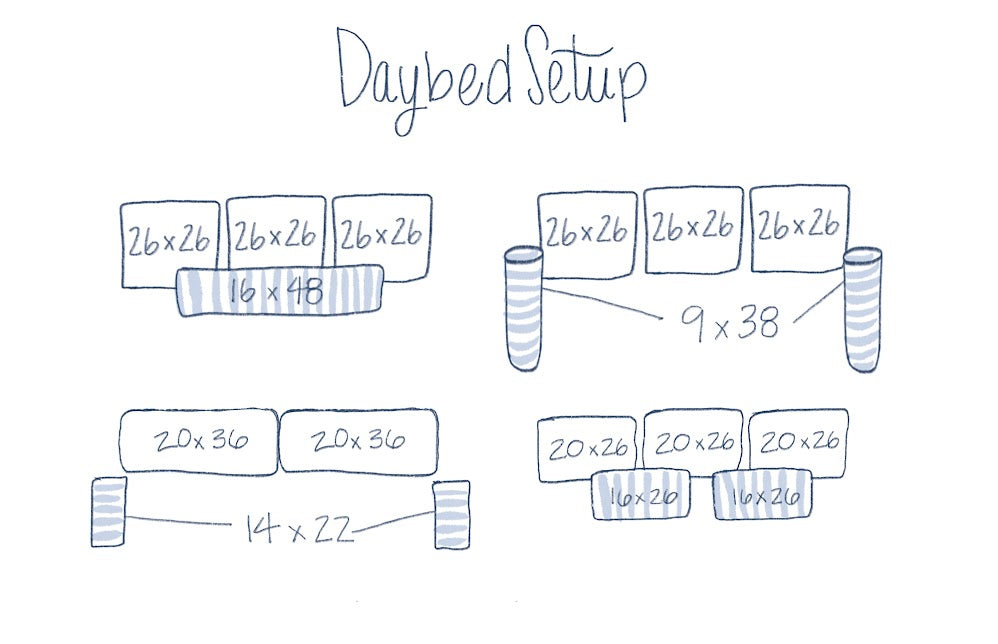 Daybed Setup
26x26 26x26 26x26
16 x 48
26x26 26x26 26x26
9 x 38
20x36 20x36
14 x 22
20x26 20x26 20x26
16x26 16x26